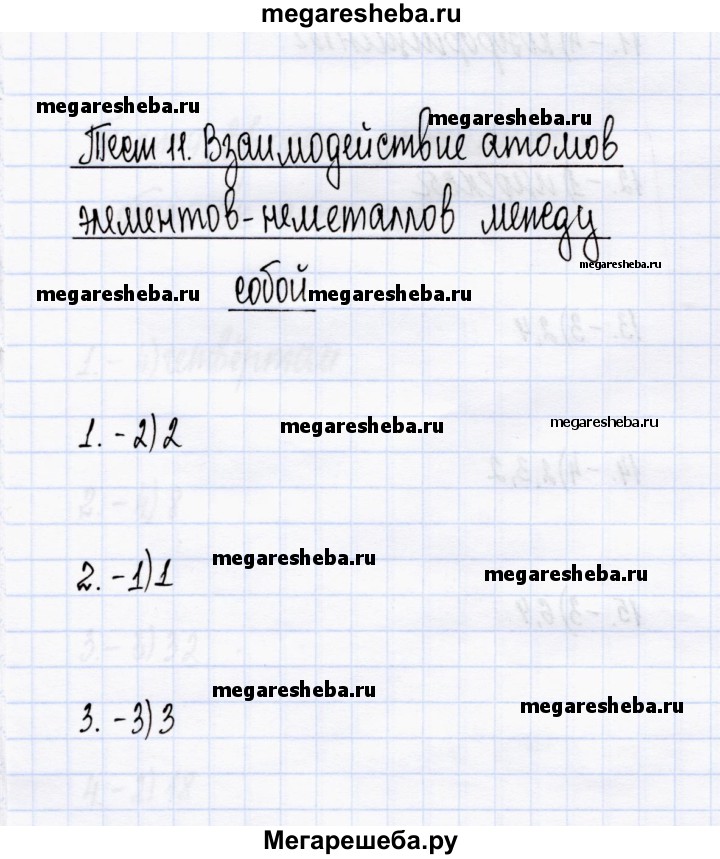 megaresheba.ru
megaresheba.ru
megaresheba.ru
Тест 11. Взаимодействие атомов
элементов-неметаллов между
megaresheba.ru
megaresheba.ru собой megaresheba.ru
1. - 2) 2 megaresheba.ru megaresheba.ru
2. - 1) 1 megaresheba.ru megaresheba.ru
3. - 3) 3 megaresheba.ru megaresheba.ru
Мегарешеба.ру